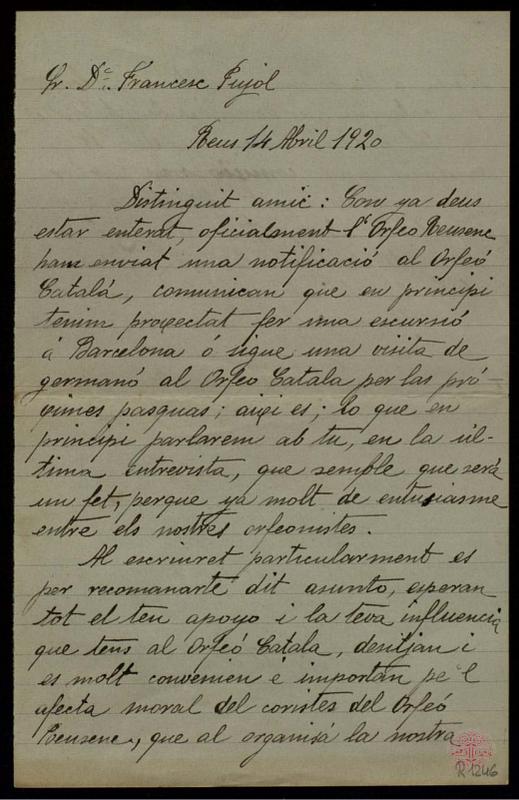 Sr. Dn. Francesc Pujol
Reus 14 Abril 1920
Distinguit amic: Com ya deus
estar enterat, oficialment l'Orfeo Reusenc
ham enviat una notificació al Orfeó
Catalá, comunican que en principi
tenim proyectat fer una escursió
á Barcelona ó sigue una visita de
germanó al Orfeo Catala per las pró
ximes pasquas; aixi es; lo que en
principi parlarem ab tu, en la úl-
tima entrevista, que semble que será
un fet, perque ya molt de entusiasme
entre els nostres orfeonistes.
Al escriuret particularment es
per recomanarte dit asunto, esperan
tot el teu apoyo i la teva influencia
que tens al Orfeó Catala, desitjan i
es molt convenien é importan pe'l
efecta moral del coristes del Orfeó
Reusenc, que al organisá la nostra
R 1246